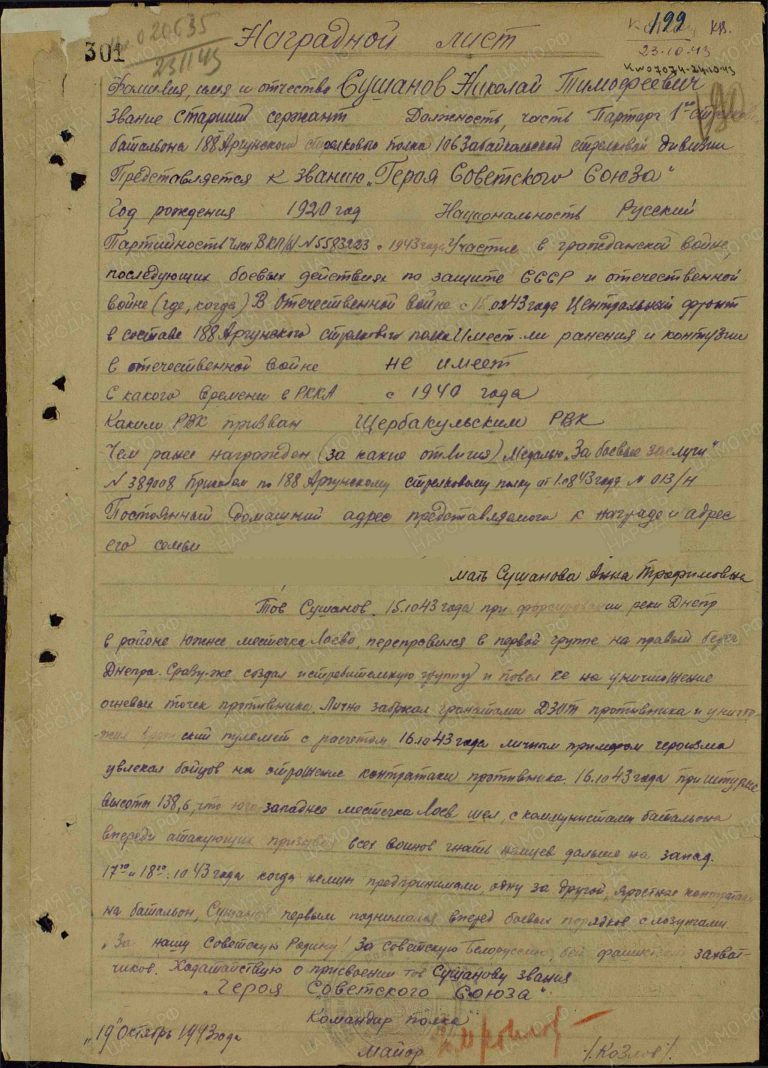 301
020635
23/11 43
Наградной лист
199
23-10-43
Фамилия, имя и отчество Сушанов Николай Тимофеевич
Звание старший сержант Должность, часть Парторг 1го
батальона 188 Аргунского стрелкового полка 106 Забайкальской стрелковой дивизии
Представляется к званию „Героя Советского Союза“
Год рождения 1920 год Национальность Русский
Партийность Член ВКП(б) N 5583223 с 1943 года Участие в гражданской войне
последующих боевых действиях по защите СССР и отечественной
войне (где, когда) В Отечественной войне с 15.02.43 года Центральный фронт
в составе 188 Аргунского стрелкового полка Имеет ли ранения и контузии
в отечественной войне не имеет
С какого времени в РККА с 1940 года
Каким РВК призван Щербакульским РВК
Чем ранее награжден (за какие отличия) Медалью „За боевые заслуги“
N 389008 Приказом по 188 Аргунскому стрелковому полку от 1.08.43 года N 013/н
Постоянный домашний адрес представляемого к награде и адрес
его семьи
мать Сушанова Анна Трофимовна
Тов Сушанов 15.10.43 года при форсировании реки Днепр
в районе южнее местечка Лоево, переправился в первой группе на правый берег
Днепра. Сразу-же создал истребительную группу и повел ее на уничтожение
огневых точек противника. Лично забросал гранатами ДЗОТ противника и уничто-
жил ский пулемет с расчетом 16.10.43 года личным примером героизма
увлекал бойцов на отражение контратаки противника. 16.10.43 года при штурме
высоты 138,6, что юго западнее местечка Лоев шел, с коммунистами батальона
впереди атакующих призывая всех воинов гнать немцев дальше на запад.
17го и 18го.10 43 года когда немцы предпринимали, одну за другой, яростные контратаки
на батальон, Сушанов первым поднимался вперед боевых порядков с лозунгами
„За нашу Советскую Родину! За Советскую Белоруссию, бей фашистских захват-
чиков. Ходатайствую о присвоении тов Сушанову звания
„Героя Советского Союза“
Командир полка
„19“ Октябрь 1943 года
майор /Козлов/.